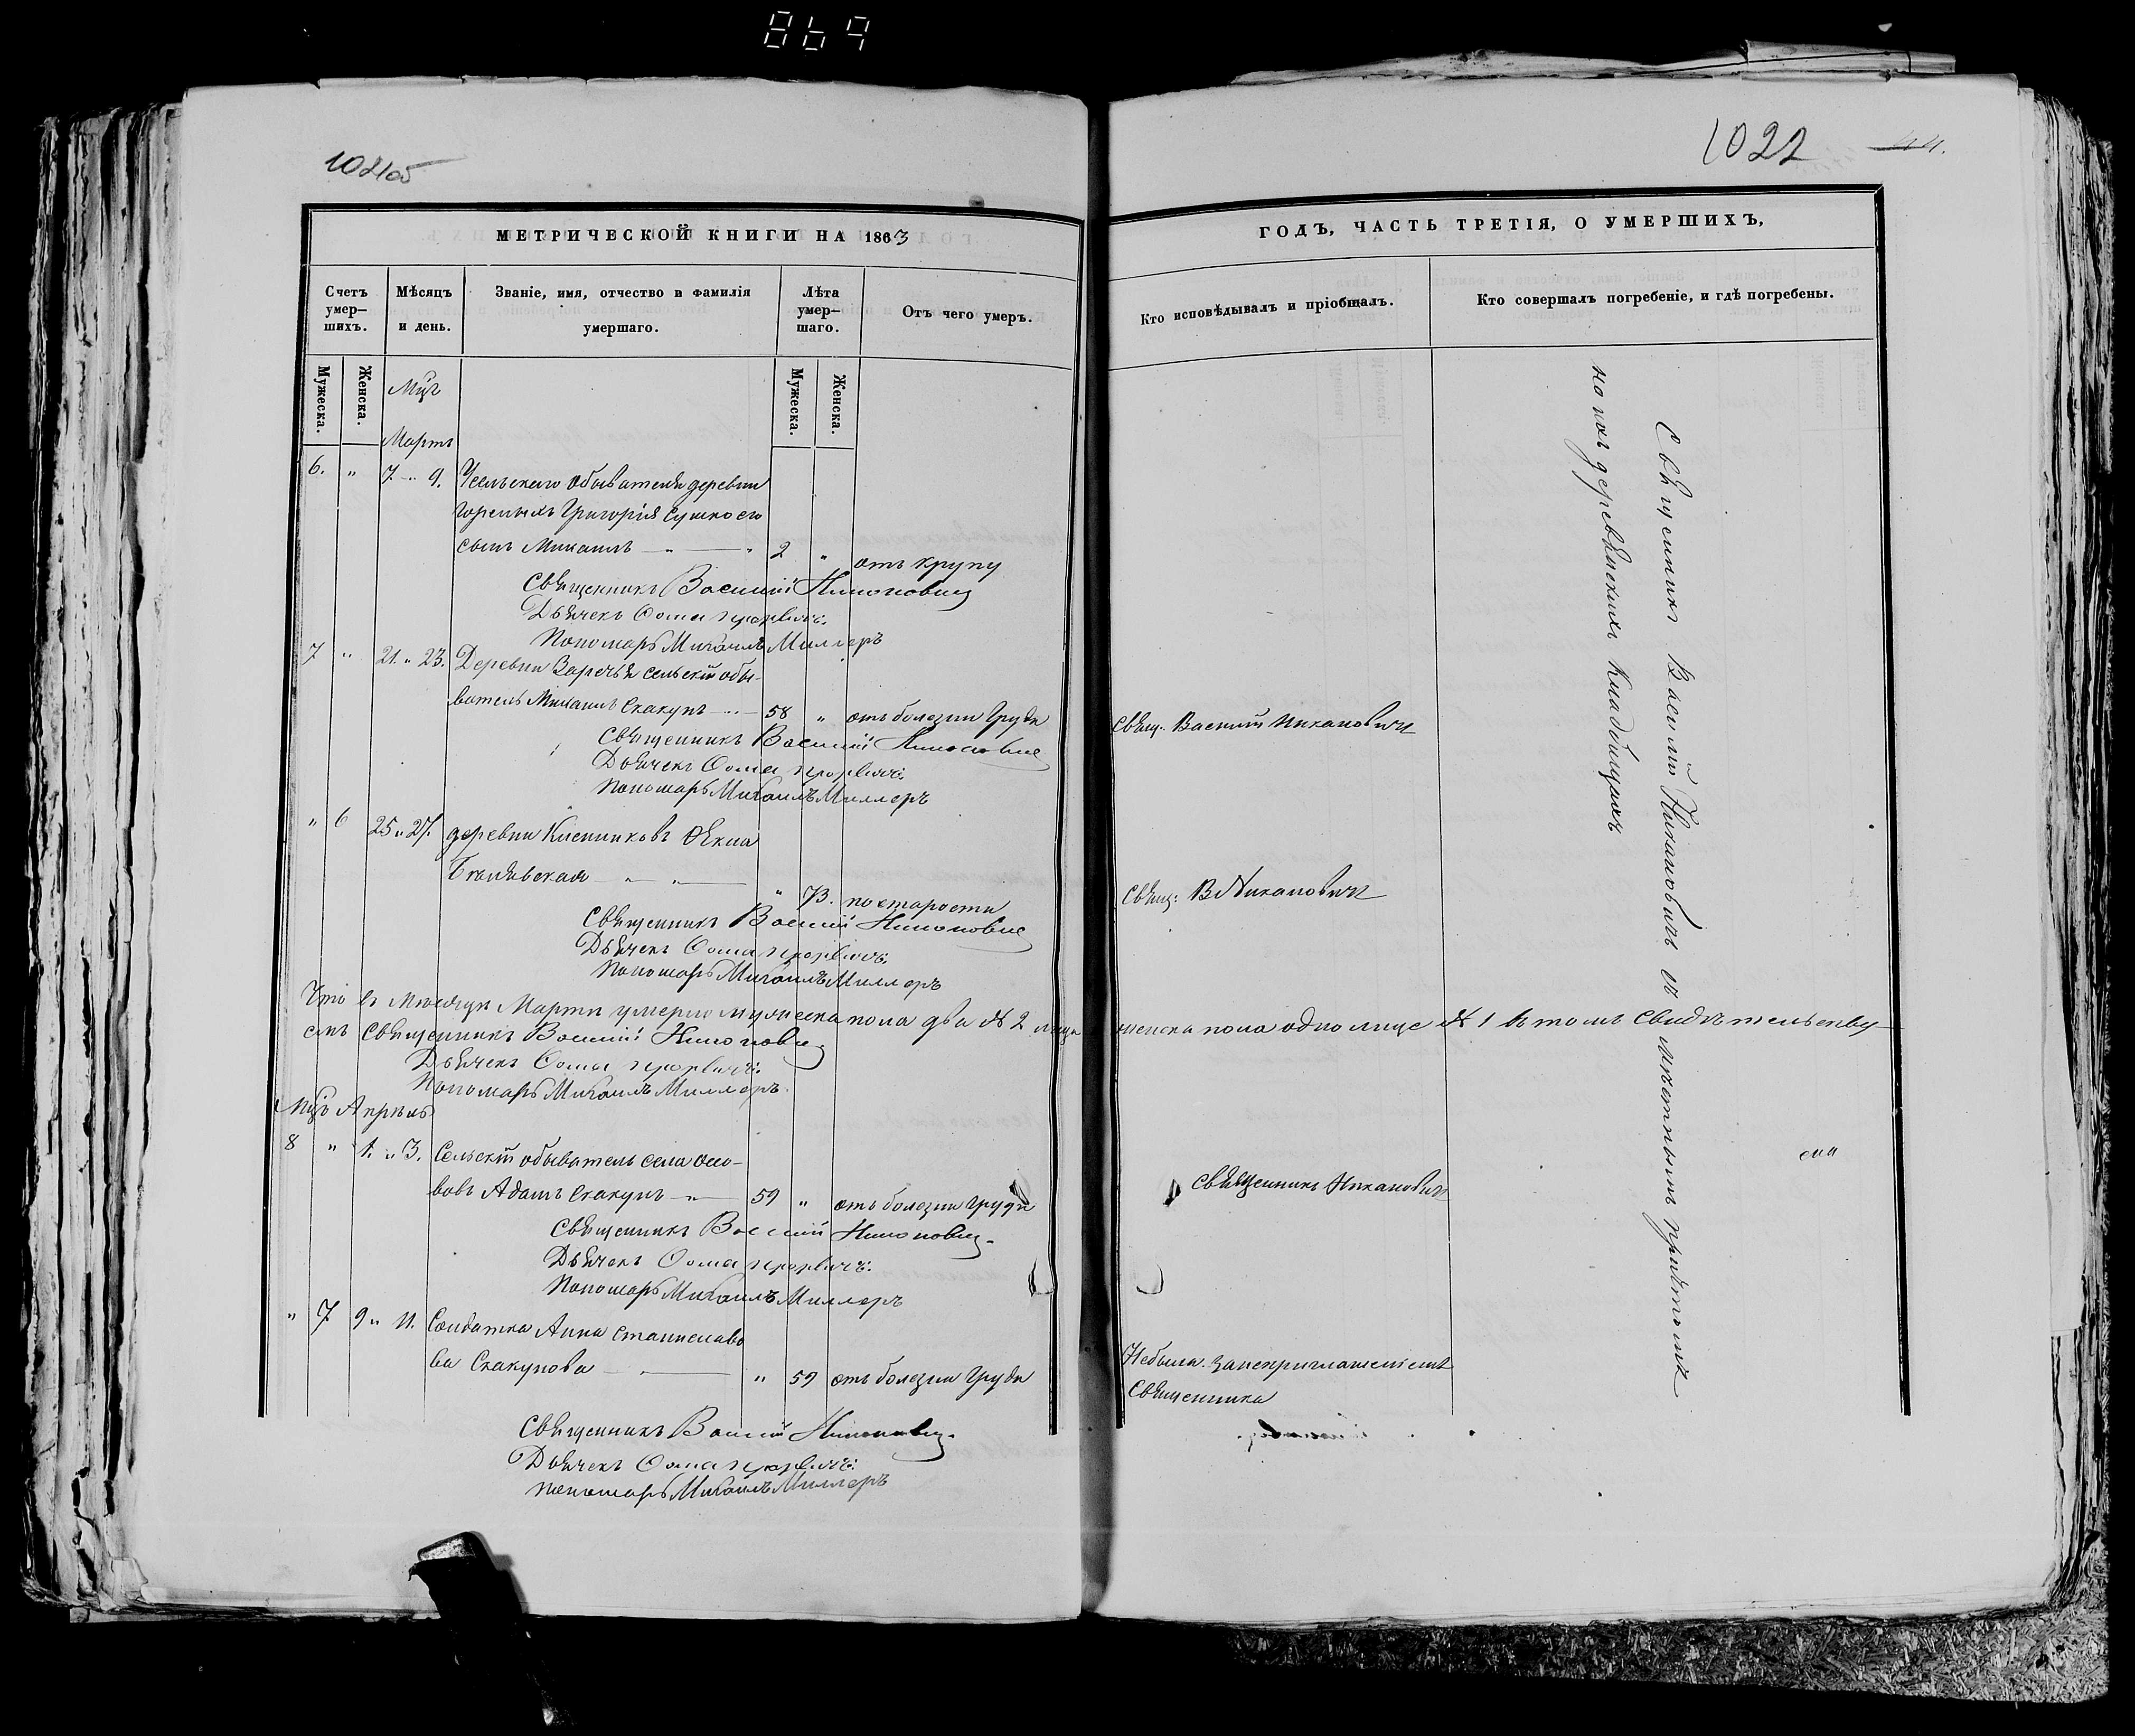 869
1022
МЕТРИЧЕСКОЙ КНИГИ НА 1863
ГОДЪ, ЧАСТЬ ТРЕТІЯ, О УМЕРШИХЪ,
Счетъ умер-шихъ.
Мѣсяцъ и день.
Званіе, имя, отчество и фамилія умершаго.
Лѣта умер-шаго.
Отъ чего умеръ.
Кто исповѣдывалъ и пріобщалъ.
Кто совершалъ погребеніе, и гдѣ погребены.
Мужеска.
Женска.
Мужеска.
Женска.
Мартъ
6. " 7. " 9. обывателя деревни
Григорія Сушко его
сынъ Михаилъ 2 " отъ крупу
Священникъ Василій Никоновичъ
Дьячекъ Ѳома
Пономарь Михаилъ Миллеръ
7 " 21. " 23. Деревни Заречья сельскій обы-
ватель Михаилъ Скакунъ 58 " отъ болезни груди
Свящ: Василий Никановичъ
Священникъ Василій Никоновичъ
Дьячекъ Ѳома
Пономарь Михаилъ Миллеръ
" 6 25 " 27. деревни Ѳекла
73. по старости
Свящ: В Никановичъ
Священникъ Василій Никоновичъ
Дьячекъ Ѳома
Пономарь Михаилъ Миллеръ
Что въ месяце Марте умерло мужеска пола два № 2 лица женска пола одно лице № 1 въ томъ свидетельству-
емъ Священникъ Василій Никоновичъ
Дьячекъ Ѳома
Пономарь Михаилъ Миллеръ
Апрѣль
8 " 1. " 3. Сельскій обыватель села Осо-
вовъ Адамъ Скакунъ 59 " отъ болезни груди
Священникъ Никановичъ
Священникъ Василій Никоновичъ
Дьячекъ Ѳома
Пономарь Михаилъ Миллеръ
" 7 9 " 11. Солдатка Анна Станиславо
ва Скакунова " 59 отъ болезни груди
Небыла занеприглашеніемъ
Священника
Священникъ Василій Никоновичъ
Дьячекъ Ѳома
Пономарь Михаилъ Миллеръ
Священникъ Василій Никановичъ съ местнымъ причтомъ
на деревенскихъ кладбищахъ